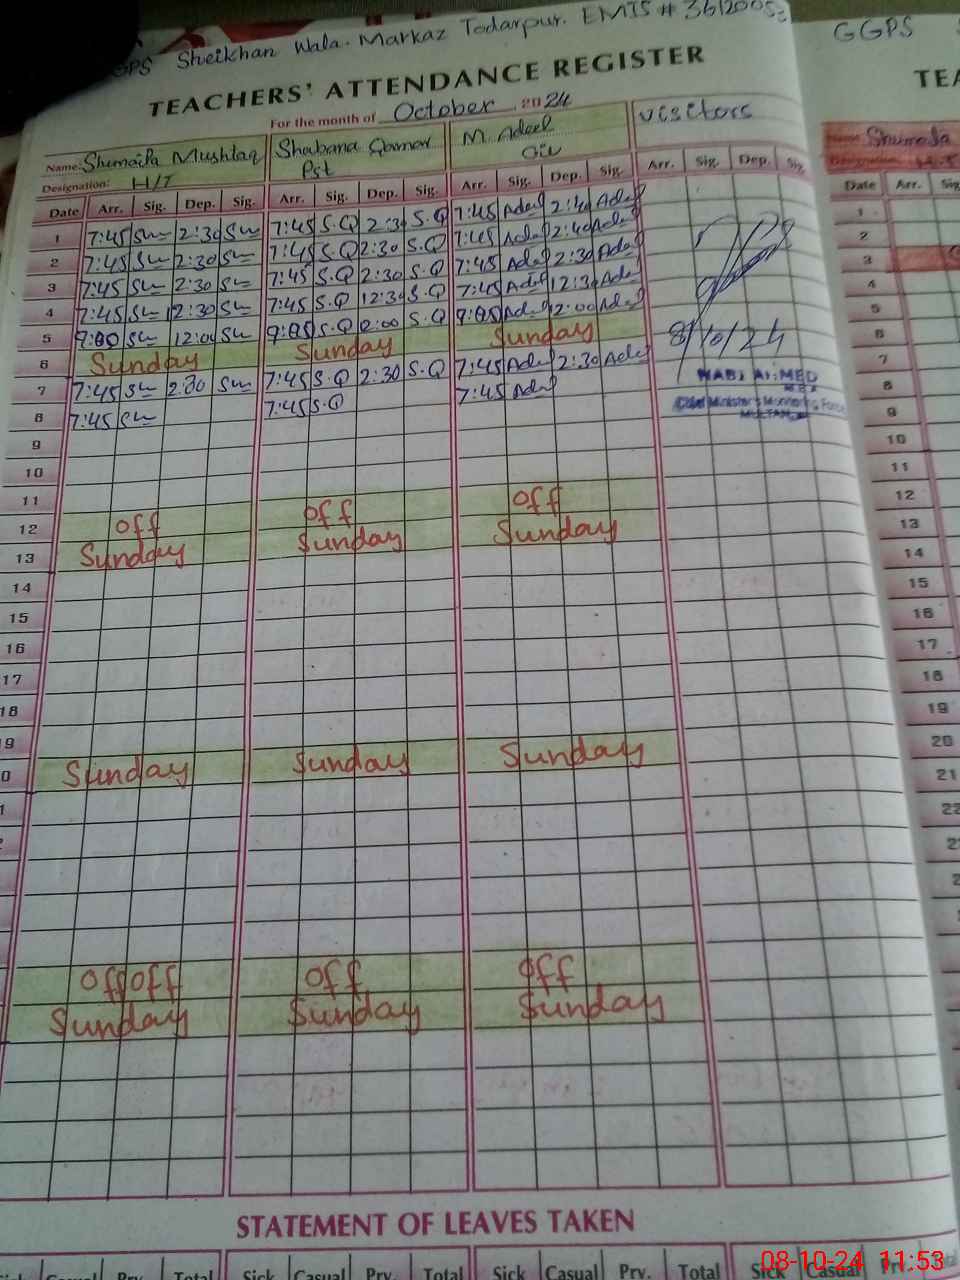 GGPS Sheikhan Wala. Markaz Todarpur. EMIS # 3612005
GGPS
TEACHERS' ATTENDANCE REGISTER
TEA
For the month of October 2024
Name: Shumaila Mushtaq Shabana Qamar M. Adeel Visitors
Name: Shumaila
Designation: H/T Pst
Date Arr. Sig. Dep. Sig. Arr. Sig. Dep. Sig. Arr. Sig. Dep. Sig. Arr. Sig. Dep. Sig.
Date Arr. Sig
1 7:45 Sm 2:30 Sm 7:45 S.Q 2:30 S.Q 7:45 Adeel 2:40 Adeel
2 7:45 Sm 2:30 Sm 7:45 S.Q 2:30 S.Q 7:45 Adeel 2:40 Adeel
3 7:45 Sm 2:30 Sm 7:45 S.Q 2:30 S.Q 7:45 Adeel 2:30 Adeel
4 7:45 Sm 12:30 Sm 7:45 S.Q 12:30 S.Q 7:45 Adeel 12:30 Adeel
5 Sm 12:00 Sm S.Q S.Q Adeel 2:00 Adeel
6 Sunday Sunday Sunday
7 7:45 Sm 2:30 Sm 7:45 S.Q 2:30 S.Q 7:45 Adeel 2:30 Adeel
8 7:45 Sm 7:45 S.Q 7:45 Adeel
8/10/24
Chief Minister's Monitoring Force
MULTAN
9
10
11
12 off off off
13 Sunday Sunday Sunday
14
15
16
17
18
19
0 Sunday Sunday Sunday
1
off off off off
Sunday Sunday Sunday
1
2
3
4
5
6
7
8
9
10
11
12
13
14
15
16
17
18
19
20
21
22
STATEMENT OF LEAVES TAKEN
Sick Casual Prv. Total Sick Casual Prv. Total Sick Casual Prv. Total Sick Casual Prv.
08-10-24 11:53